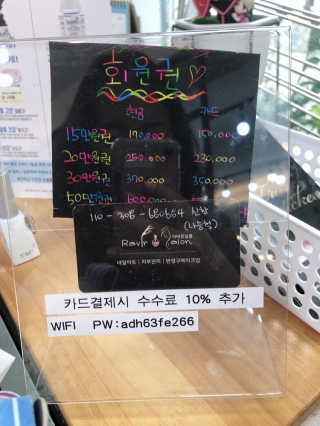 회원권
현금 카드
15만원권 170,000 150,000
20만원권 250,000 230,000
30만원권 370,000 350,000
50만원권
110-308-680664 신한
네일아트 | 피부관리 | 반영구메이크업
카드결제시 수수료 10% 추가
WIFI PW:adh63fe266